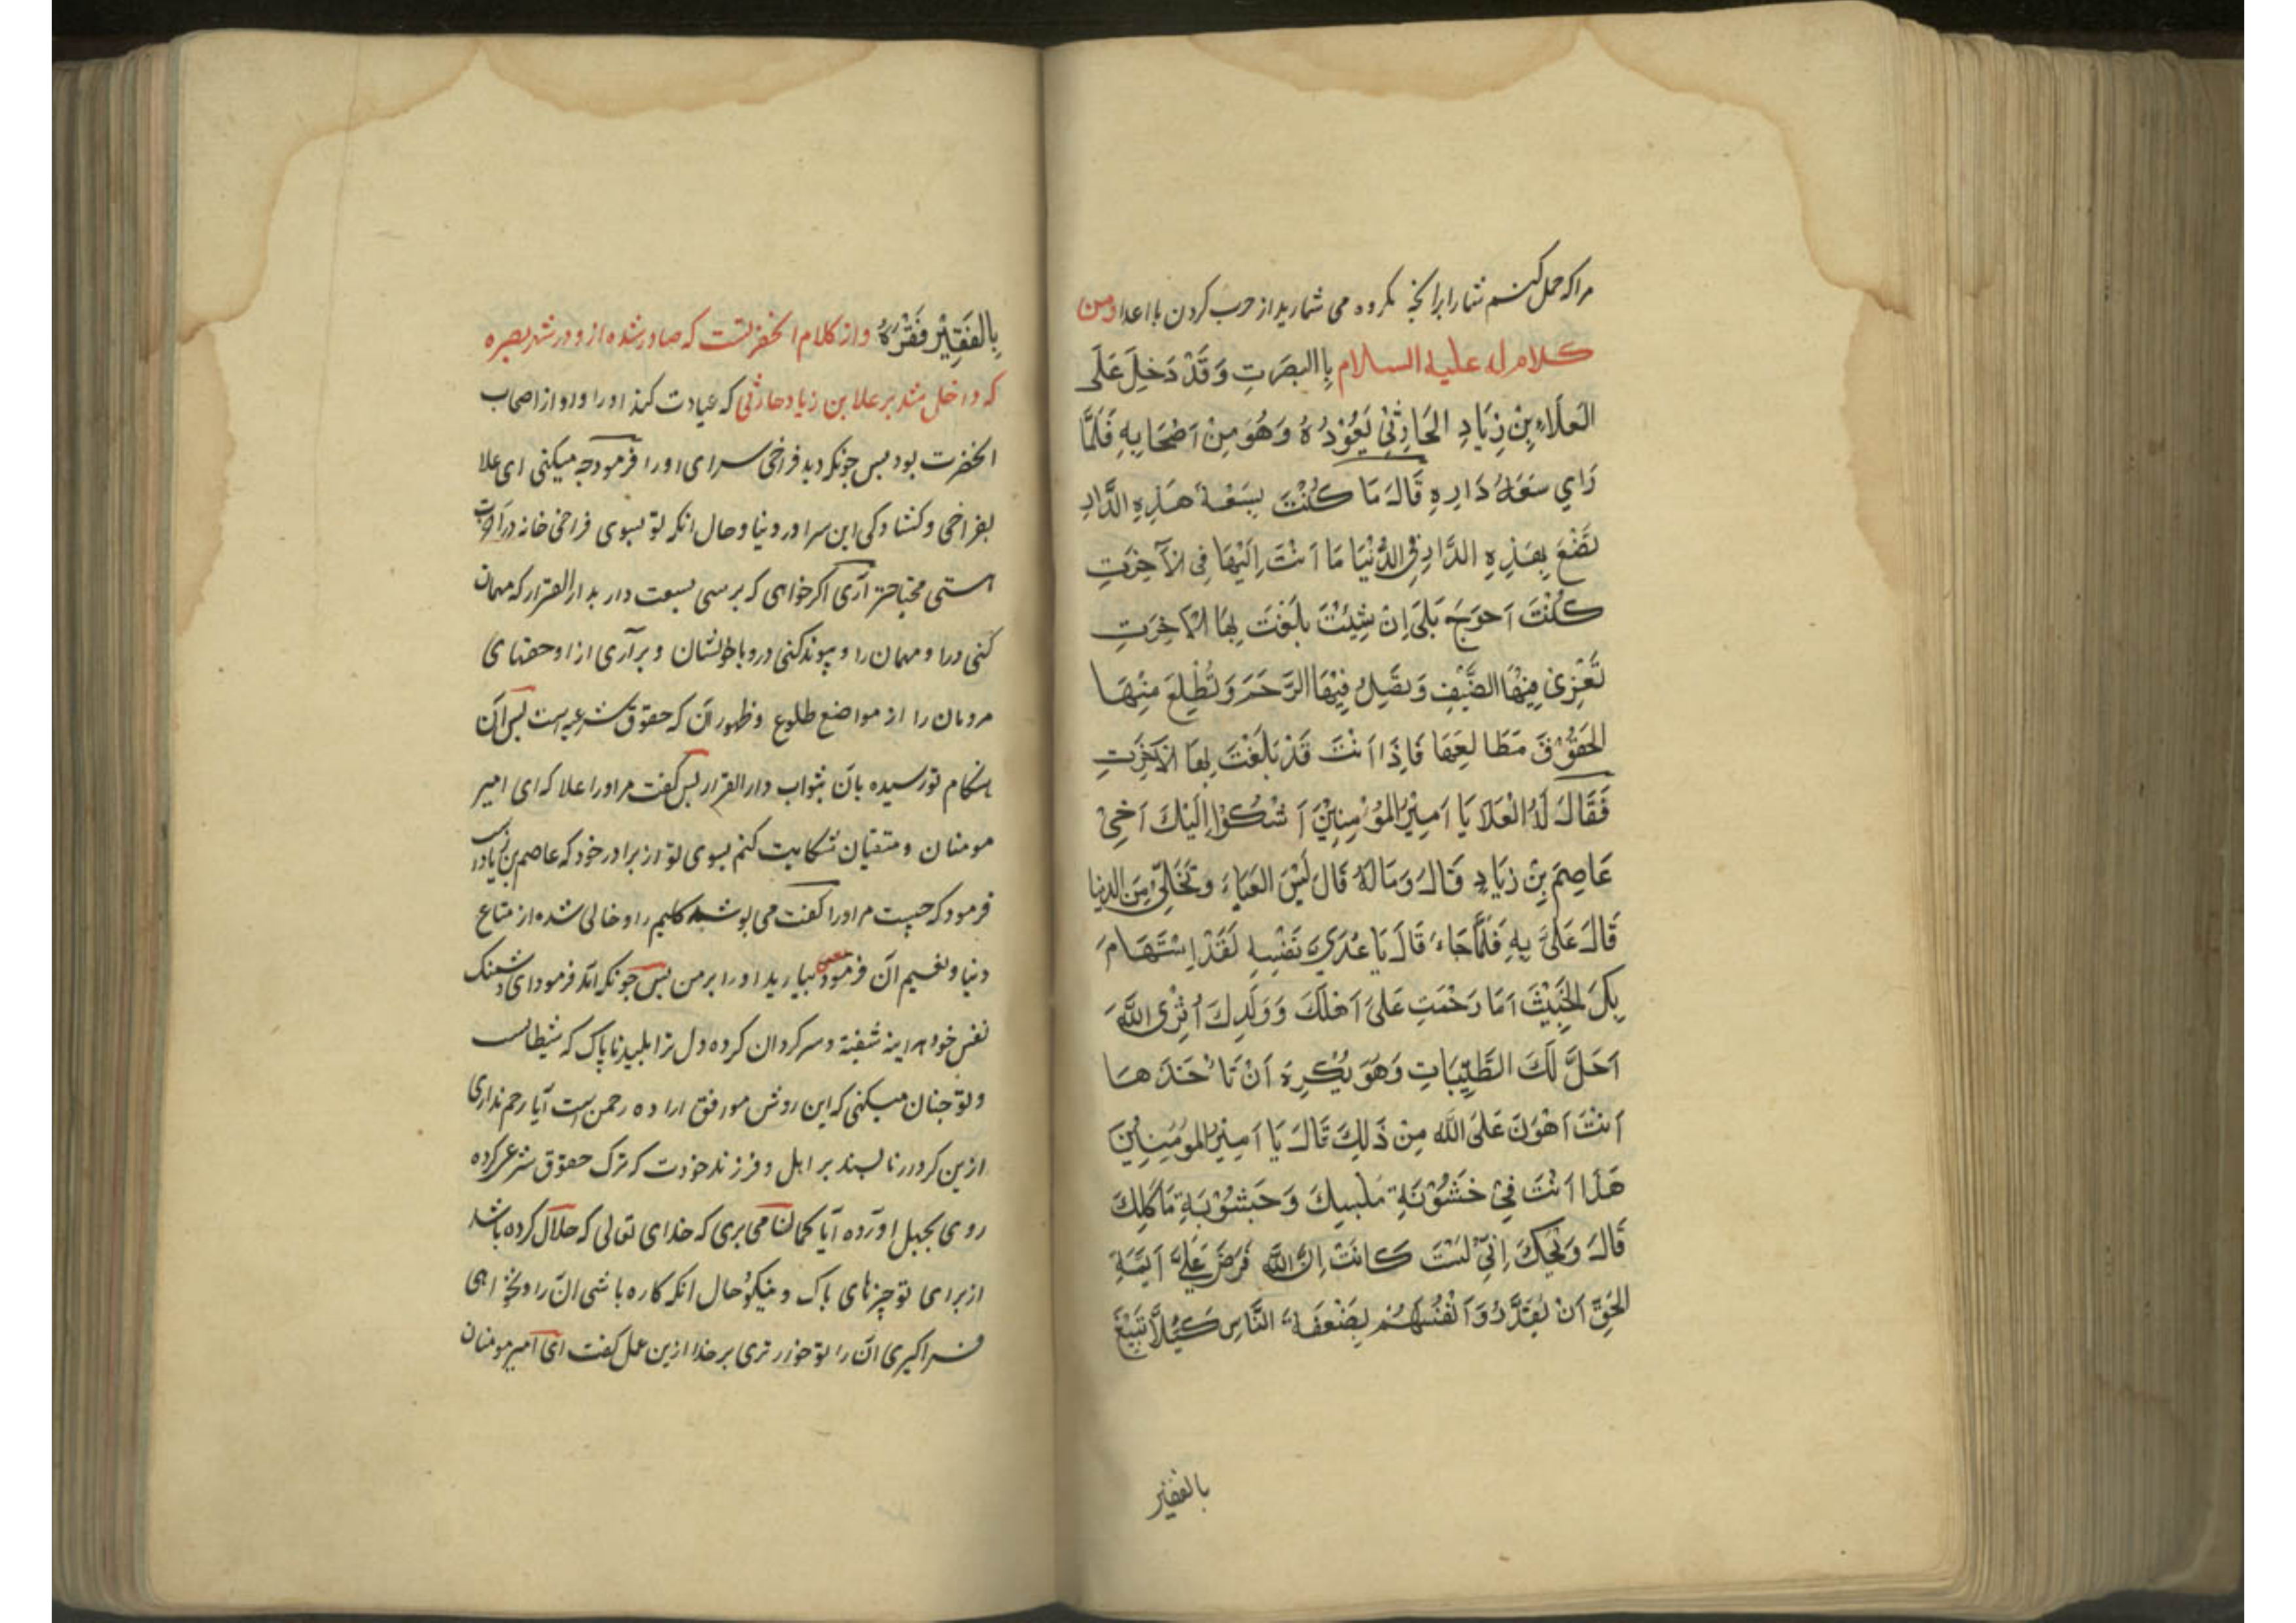 مرا که حمل کنم شما را برآنچه مکروه می شمارید از حرب کردن با اعدا ومن
کلام له علیه السلام بِاالبصَرتِ وَقَدْ دَخلَ عَلَی
العَلَاءِ بِنْ زِیَادِ الحَارِثِيْ یَعُوْدُهُ وَهُوَ مِنْ اَصْحَابِهِ فَلَمَّا
رَاي سَعَةُ دَارِهِ قَالَ مَا کُنْتَ بِسَعَةِ هَذِهِ الدَّارِ
تَضْعَ بِهَذِهِ الدَّارِ فِي الدُّنْیَا مَا اَنْتَ اِلَیْهَا فِی الآخِرَتِ
کُنْتَ اَحوَجَ بَلَی اِنْ شِئْتَ بَلَغْتَ بِهَا الآخِرَتِ
تَقْرِیْ فِیْهَا الضَّیْفِ وَتَصَِلُ فِیْهَا الرَّحَمَ وَتُطْلِعَ مِنْهَا
الحَقُوْقَ مَطَالِعَهَا فَاِذَا اَنْتَ قَدْ بَلَغْتَ بِهَا الآخِرَتِ
فَقَالَ لَهُ الْعَلَا یَا اَمِیْرُ المُؤْمِنِیْنَ اَشْکُوْا اِلَیْكَ اَخِيْ
عَاصِمَ بِنْ زِیَادِ قَالَ وَمَالَهُ قَالَ لَبْسَ العَبَاءَ وَتَخَلَّی مِنَ الدنیا
قَالَ عَلَیَّ بِهِ فَلَمَّا جَاءَ قَالَ یَا عُدَيَّ نَفْسِهِ لَقَدْ اِسْتَهَامَ
بِكَ الخَبِیْثَ اَمَا رَحْمَتِ عَلَیَ اَهْلَكَ وَوَلَدِكَ اَتَرَی اللَّهَ
اَحَلَّ لَكَ الطَّیِّبَاتِ وَهُوَ یُکْرِهَ اَنْ تَاْخَذَهَا
اَنْتَ اَهْوَنَ عَلَیَ اللَّهِ مِنْ ذَلِكَ قَالَ یَا اَمِیْرُ المُؤْمِنِیْنَ
هَذَا اَنْتَ فِيْ خَشُوْنَةِ مَلْبَسِكَ وَجَشُوْبَةِ مَاْکَلِكَ
قَالَ وَیْحَكَ اِنِّيْ لَسْتَ کَانْتَ اِنَّ اللَّهَ فَرَضَ عَلَیَ اَئِمَّةِ
الحَقِّ اَنْ یُقَدِّرُوْا اَنْفُسَهُمْ بِضَعَفَةِ النَّاسِ کَیْلَا یَتَبَیَّغَ
بالفقیر
بِالفَقِیْرِ فَقْرُهُ واز کلام آنحضرتست که صادر شده از و در شهر بصره
که داخل شد بر علا بن زیاد حارثی که عیادت کند او را و او از اصحاب
آنحضرت بود پس چونکه دید فراخی سرای او را فرمود چه میکنی ای علا
بفراخی و کشادکی این سرا در دنیا و حال آنکه تو بسوی فراخی خانه در آخرت
هستی محتاجتر آری اکر خواهی که برسی بسعت دار بدار القرار که مهمان
کنی درا و مهمان را و پیوند کنی درو با خویشان و برآری از او حقهای
مردمان را از مواضع طلوع و ظهور آن که حقوق شرعیه است پس آن
هنکام تو رسیده بآن بثواب دار القرار پس کفت مر او را علا که ای امیر
مومنان و متقیان شکایت کنم بسوی تو از برادر خود که عاصم بن زیاد را
فرمود که چیست مر او را کفت می پوشد کلیم را و خالی شده از متاع
دنیا و نعیم آن فرمود بیارید او را بر من پس چونکه آمد فرمود ای دشمنک
نفس خود هراینه شیفته و سرکردان کرده دل ترا پلید ناپاک که شیطانست
و تو چنان میکنی که این روش موافق اراده رحمن است آیا رحم نداری
ازین کردار ناپسند بر اهل و فرزند خودت که ترک حقوق شرعی کرده
روی بجبل آورده آیا کمان می بری که خدای تعالی که حلال کرده باشد
از برای تو چیزهای پاک و نیکو حال آنکه کاره باشی آن را و نخواهی
فراکیری آن را تو خوارتری بر خدا ازین عمل کفت ای امیر مومنان